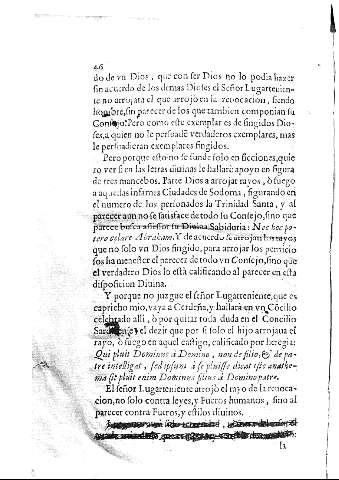 46
do de vn Dios, que con ser Dios no lo podia hazer
sin acuerdo de los demas Dioses el Señor Lugartenien-
te no arrojara el que arrojò en la revocacion, siendo
hombre, sin parecer de los que tambien componian su
Consejo. Pero como este exemplar es de fingidos Dio-
ses, a quien no le persuadẽ verdaderos exemplares, mas
le persuadieran exemplares fingidos.
Pero porque esto no se funde solo en ficciones, quie
ro ver si en las letras divinas se hallarà apoyo en figura
de tres mancebos. Parte Dios a arrojar rayos, ò fuego
a aquellas infames Ciudades de Sodoma, figurando en
el numero de los personados la Trinidad Santa, y al
parecer aun no se satisface de todo su Consejo, sino que
parece busca assessor su Divina Sabiduria: Nec hoc po-
tero celare Abraham. Y de acuerdo se arrojan los rayos
que no solo vn Dios fingido, para arrojar los pernicio
sos ha menester el parecer de todo vn Consejo, sino que
el verdadero Dios lo està calificando al parecer en esta
disposicion Divina.
Y porque no juzgue el señor Lugarteniente, que es
capricho mio, vaya a Cerdeña, y hallarà en vn Cõcilio
celebrado alli, ò por quitar toda duda en el Concilio
el dezir que por si solo el hijo arrojara el
rayo, ò fuego en aquel castigo, calificado por heregia:
Qui pluit Dominus à Domino, non de filio, & de pa-
tre intelligat, sed ipsum à se pluisse dicat iste anathe-
ma sit pluit enim Dominus filius à Domino patre.
El señor Lugarteniente arrojò el rayo de la revoca-
cion, no solo contra leyes, y Fueros humanos, sino al
parecer contra Fueros, y estilos divinos.